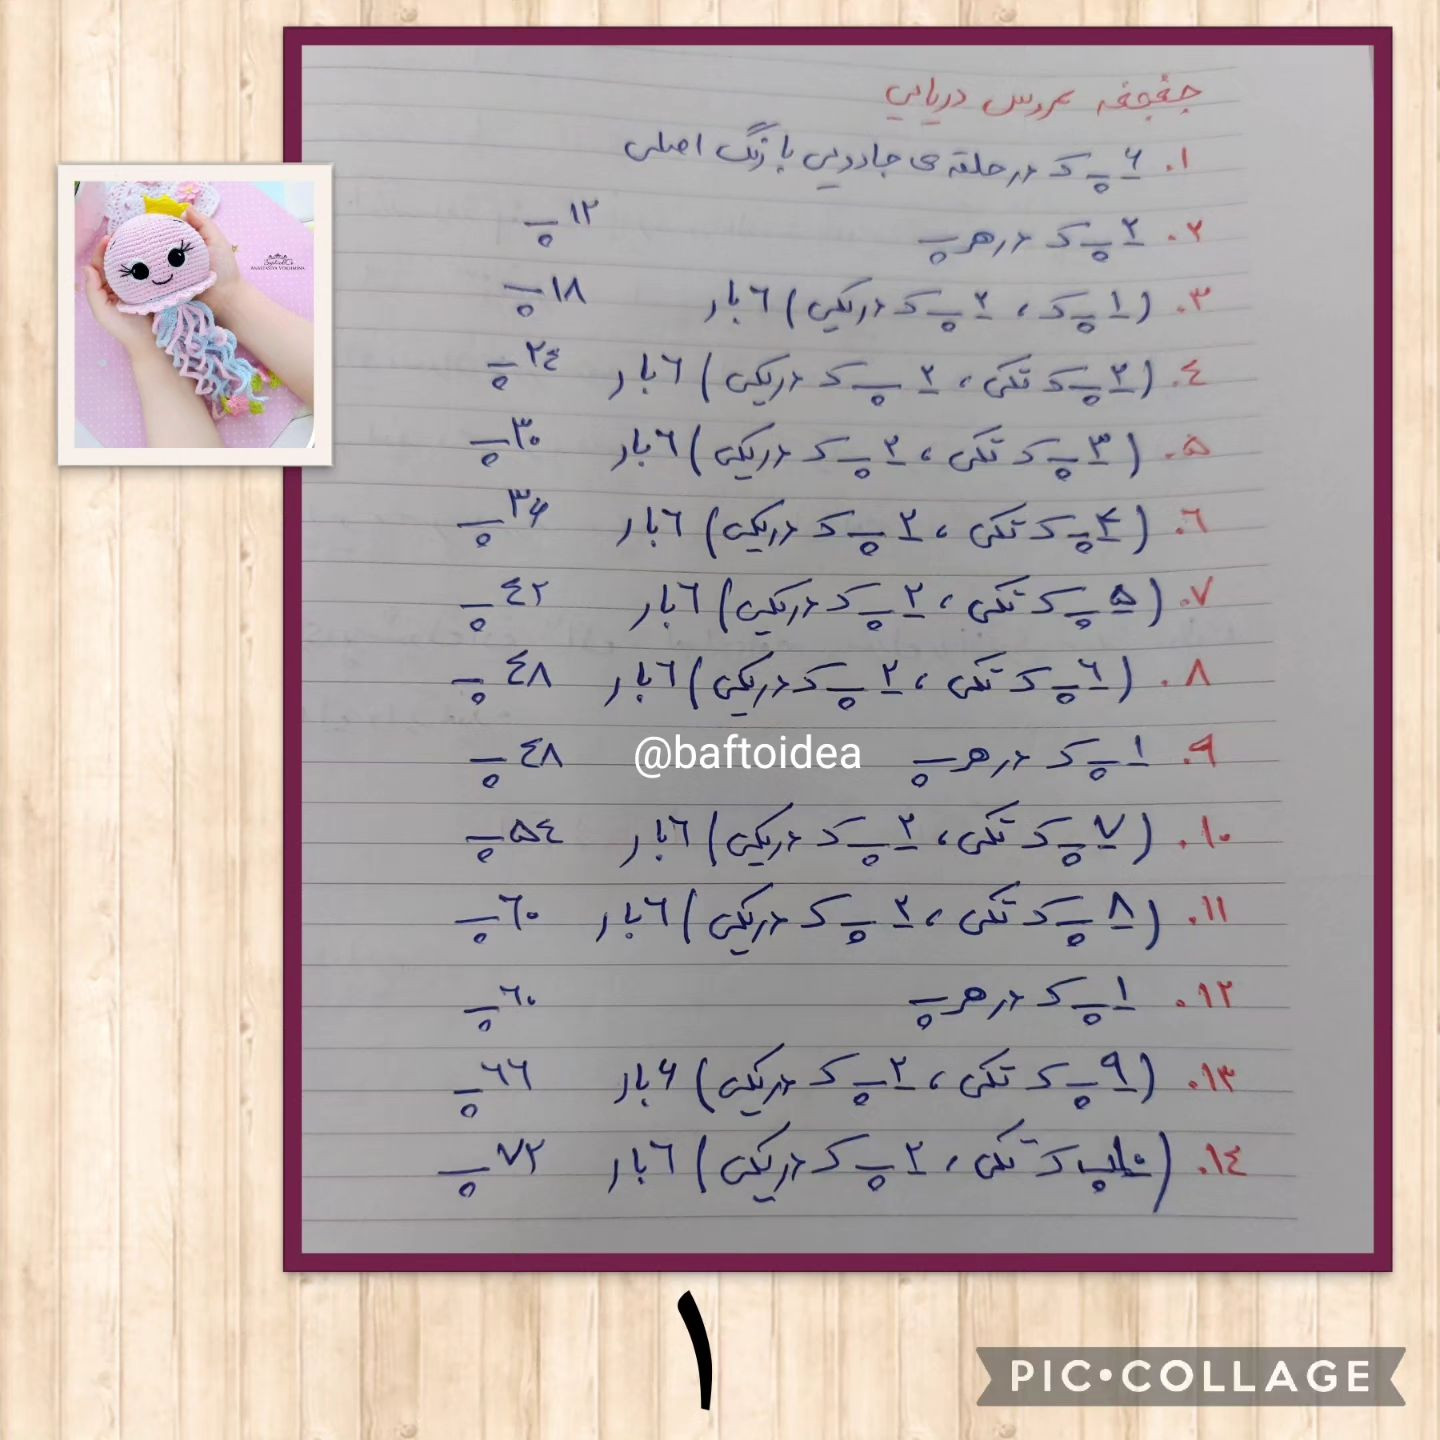 جغجغه عروس دریایی
۱. ۶ پ ک در حلقه ی جادویی با رنگ اصلی
۲. ۲ پ ک در هر پ ۱۲ پ
۳. (۱ پ ک ، ۲ پ ک در یکی) ٦ بار ۱۸ پ
٤. (۲ پ ک تکی ، ۲ پ ک در یکی) ٦ بار ۲٤ پ
۵. (۳ پ ک تکی ، ۲ پ ک در یکی) ٦ بار ۳۰ پ
٦. (۴ پ ک تکی ، ۲ پ ک در یکی) ٦ بار ۳۶ پ
۷. (۵ پ ک تکی ، ۲ پ ک در یکی) ٦ بار ٤۲ پ
۸. (٦ پ ک تکی ، ۲ پ ک در یکی) ٦ بار ٤۸ پ
۹. ۱ پ ک در هر پ ٤۸ پ
@baftoidea
۱۰. (۷ پ ک تکی ، ۲ پ ک در یکی) ٦ بار ۵٤ پ
۱۱. (۸ پ ک تکی ، ۲ پ ک در یکی) ٦ بار ٦۰ پ
۱۲. ۱ پ ک در هر پ ٦۰ پ
۱۳. (۹ پ ک تکی ، ۲ پ ک در یکی) ۶ بار ٦٦ پ
۱٤. (۱۰ پ ک تکی ، ۲ پ ک در یکی) ٦ بار ۷۲ پ
۱
PIC•COLLAGE